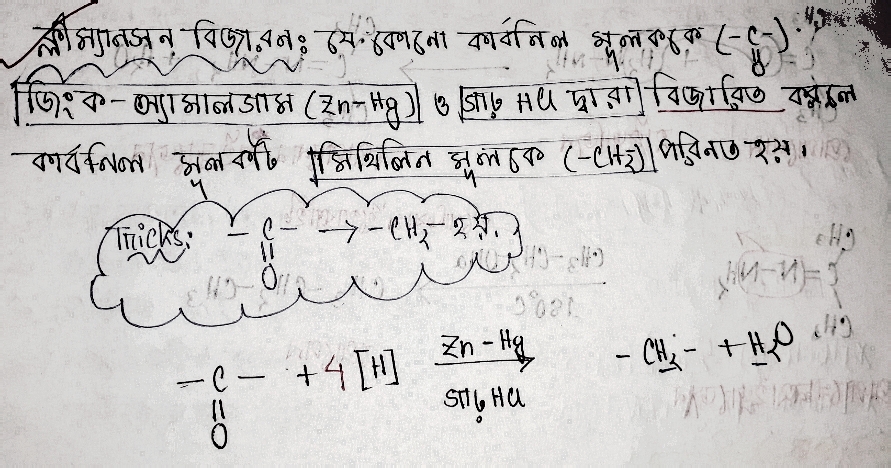 ক্লীম্যানসন বিজারন: যে কোনো কার্বনিল মূলককে (-C-)
||
O
জিংক-অ্যামালগাম (Zn-Hg) ও গাঢ় HCl দ্বারা বিজারিত করলে
কার্বনিল মূলকটি মিথিলিন মূলকে (-CH2) পরিনত হয়।
Tricks: -C- → -CH2- হয়.
||
O
-C- + 4 [H] Zn-Hg -CH2- + H2O
গাঢ় HCl
||
O